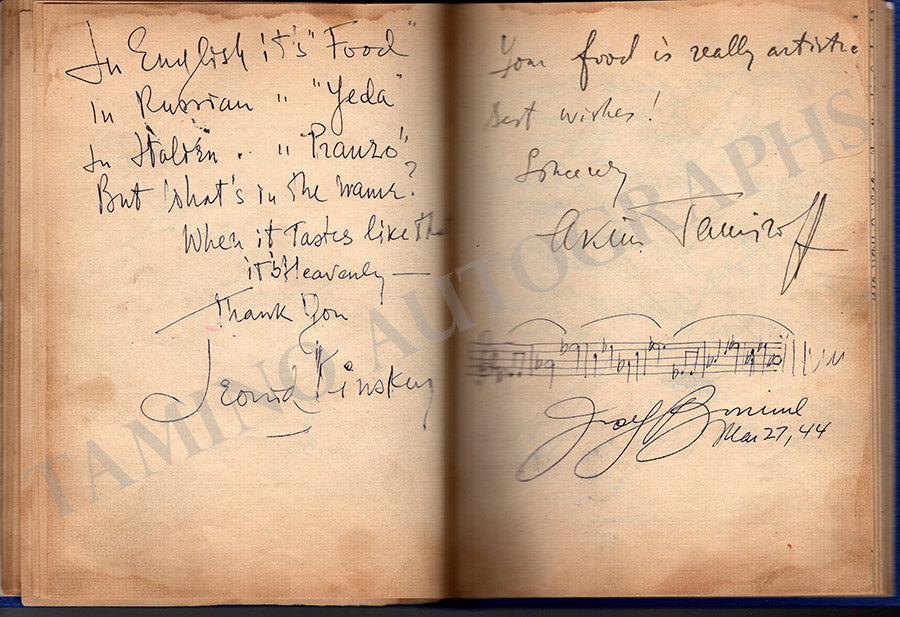 In English it's "Food"
In Russian " "Yeda"
In Italien " "Pranzo"
But What's in the name?
When it Tastes like that
it's Heavenly —
Thank You
Leonid Kinskey
Your food is really artistic
Best wishes!
Sincerely
Akim Tamiroff
Mar 27, 44
TAMINO AUTOGRAPHS